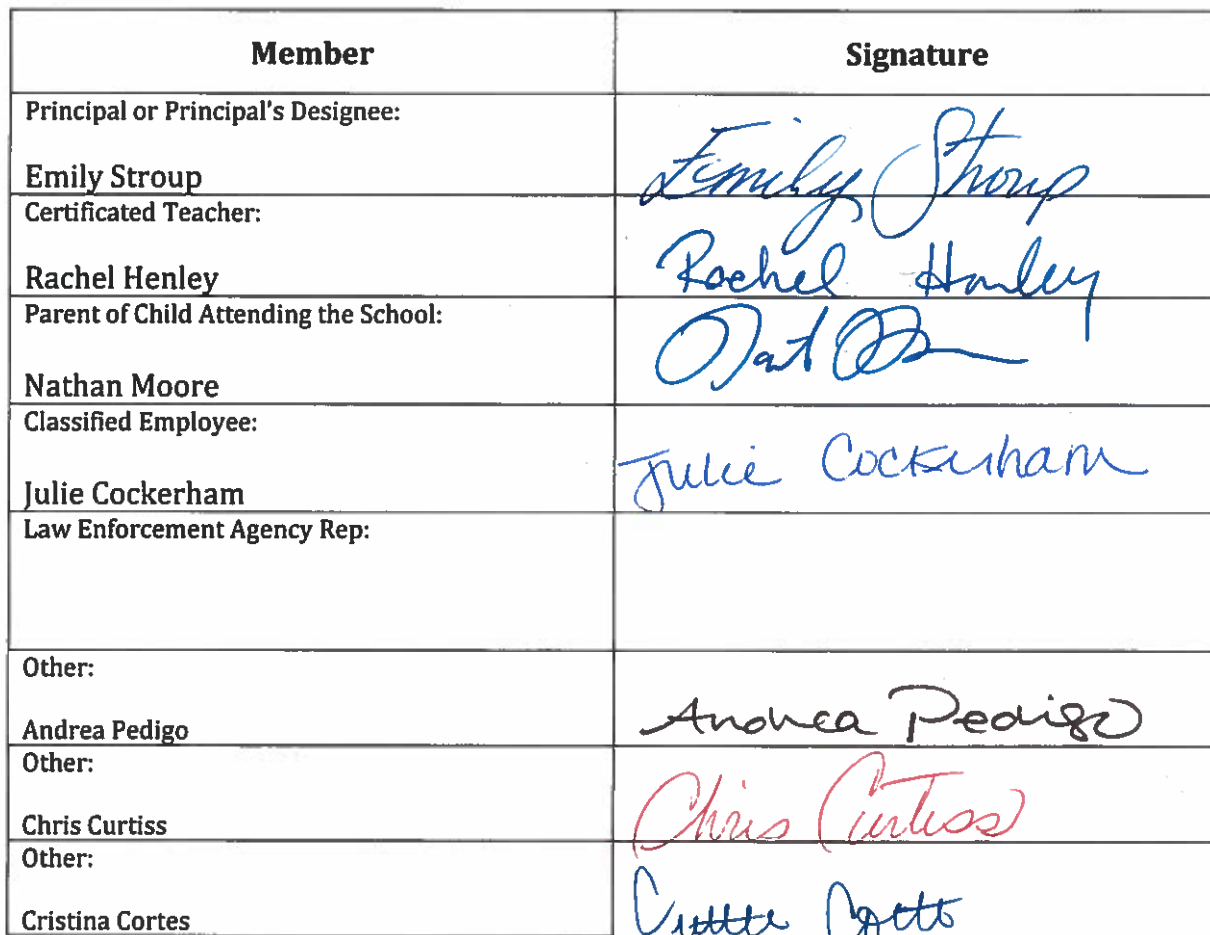 Member Signature
Principal or Principal's Designee:
Emily Stroup Emily Stroup
Certificated Teacher:
Rachel Henley Rachel Henley
Parent of Child Attending the School:
Nathan Moore
Classified Employee:
Julie Cockerham Julie Cockerham
Law Enforcement Agency Rep:
Other:
Andrea Pedigo Andrea Pedigo
Other:
Chris Curtiss Chris Curtiss
Other:
Cristina Cortes